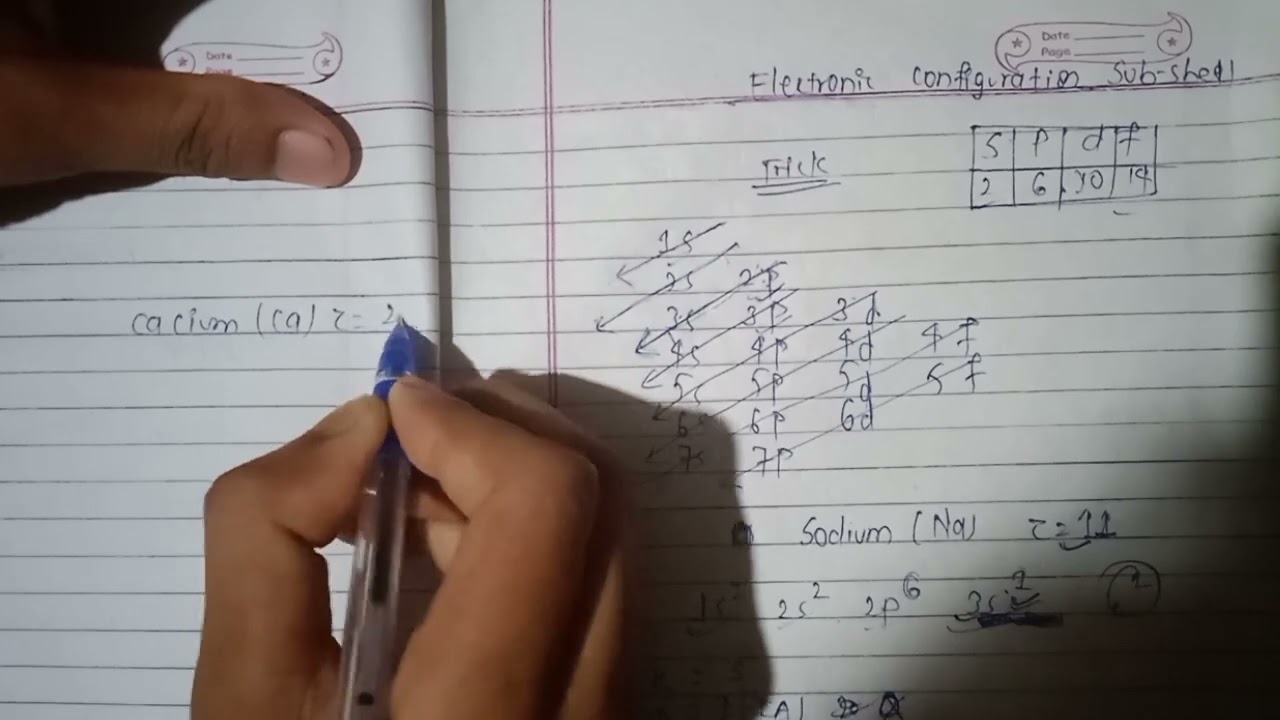 Date
Page
Date
Page
Electronic configuration Sub-shell
Trick
S P d f
2 6 10 14
1s
2s 2p
3s 3p 3d
4s 4p 4d 4f
5s 5p 5d 5f
6s 6p 6d
7s 7p
cacium (ca) z= 2
Sodium (Na) z= 11
1s 2s² 2p⁶ 3s¹ 1